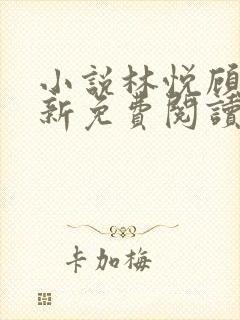 小說林悦顾
新免費閱讀
卡加梅